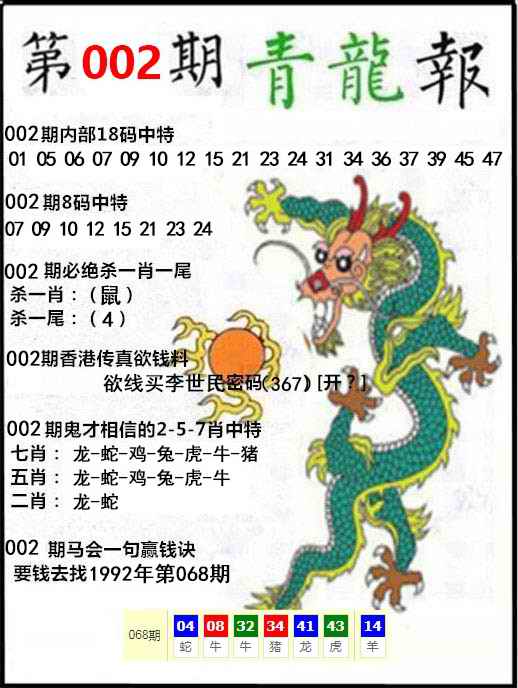 第002期 青龍報
002期内部18码中特
01 05 06 07 09 10 12 15 21 23 24 31 34 36 37 39 45 47
002期8码中特
07 09 10 12 15 21 23 24
002 期必绝杀一肖一尾
杀一肖：（鼠）
杀一尾：（4）
002期香港传真欲钱料
欲线买李世民密码(367) [开？]
002期鬼才相信的2-5-7肖中特
七肖： 龙-蛇-鸡-兔-虎-牛-猪
五肖： 龙-蛇-鸡-兔-虎-牛
二肖： 龙-蛇
002 期马会一句赢钱诀
要钱去找1992年第068期
068期 04 08 32 34 41 43 14
蛇 牛 牛 猪 龙 虎 羊